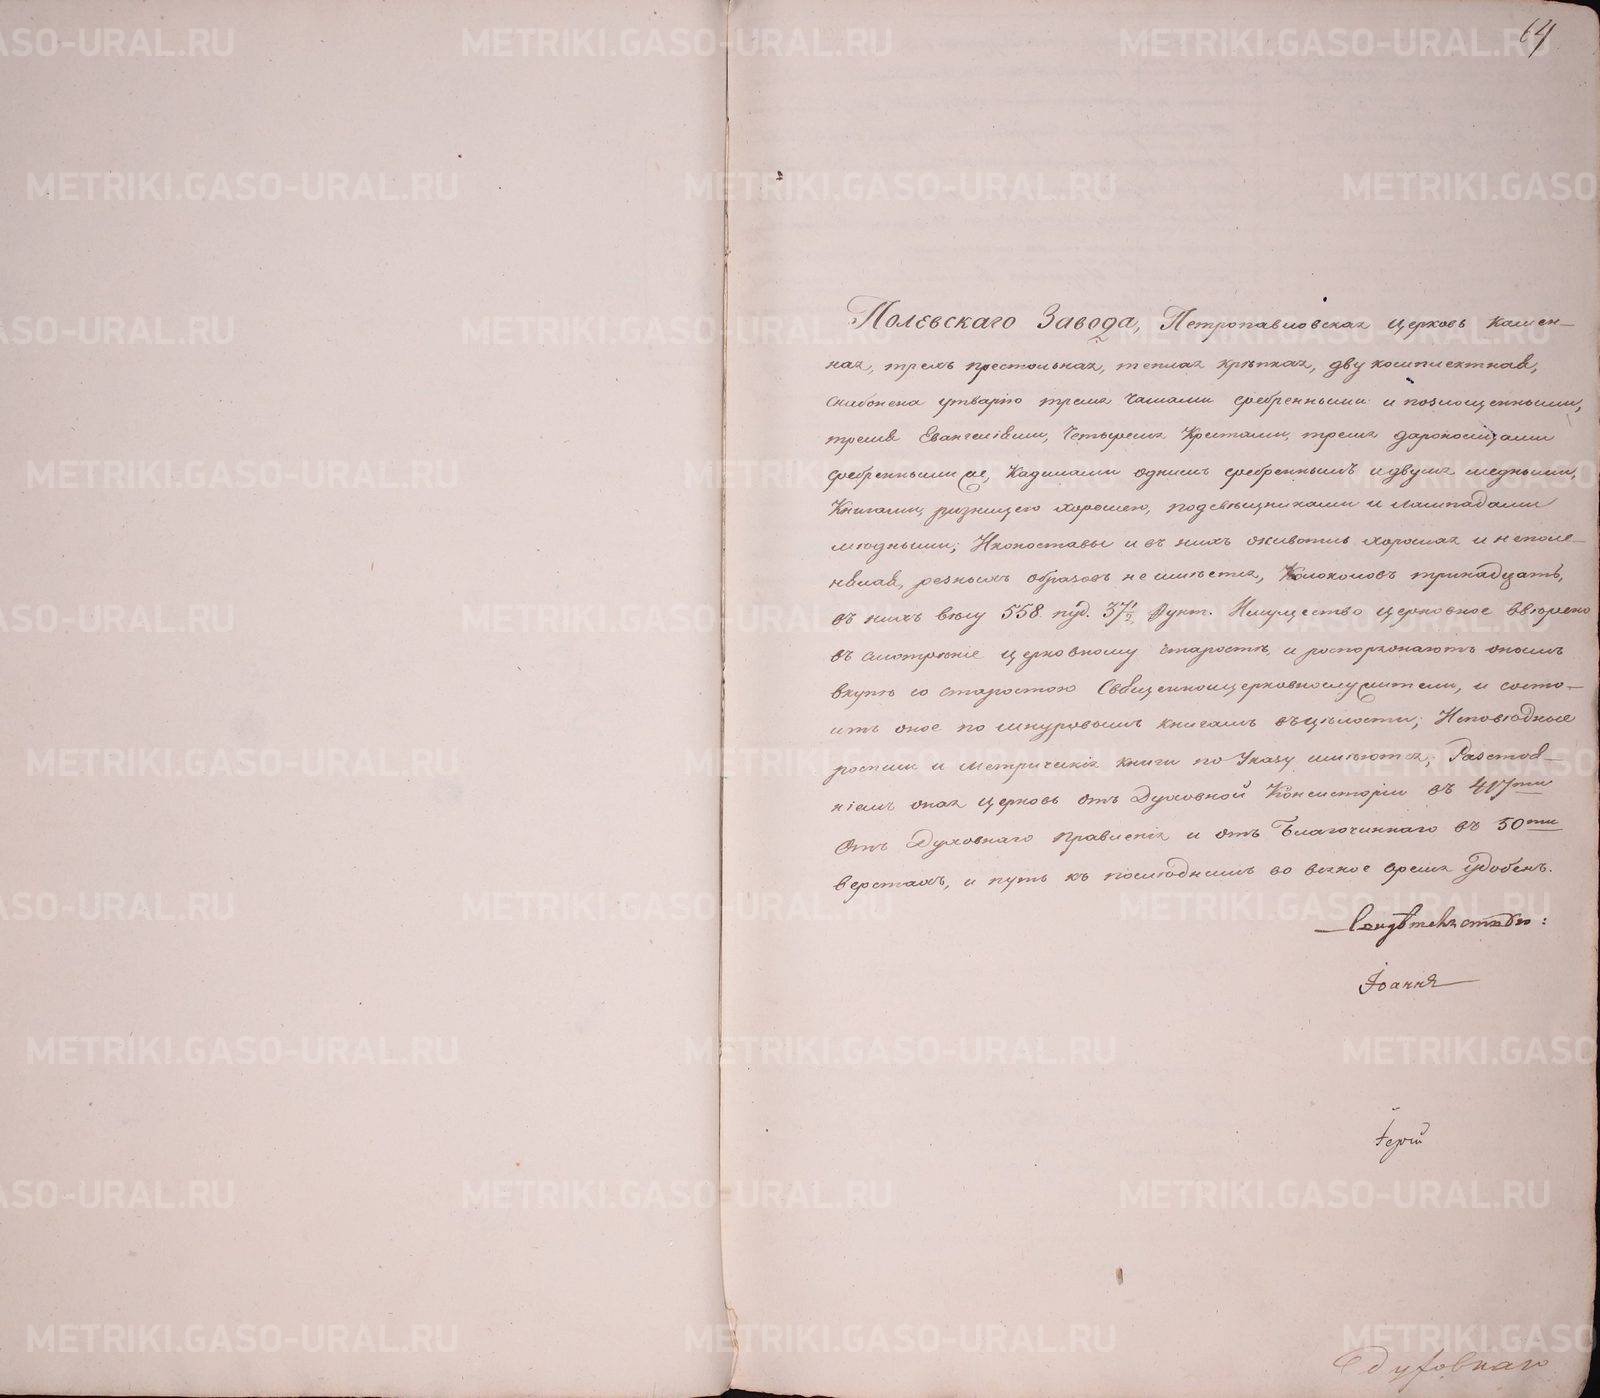 64
Полевскаго Завода, Петропавловская церковь камен-
ная, трехъ престольная, теплая крѣпкая, двукомплектная,
снабжена утварію тремя чашами сребренными и позлощенными,
тремя Евангеліями, Четырмя Крестами, тремя дароносицами
сребренными же, Кадилами однимъ сребреннымъ и двумя медными,
Книгами, ризницею хорошею, подсвѣщниками и лампадами
мѣдными; Иконоставы и въ нихъ живопись хорошая и неполи-
нялая, резныхъ образовъ не имѣется, Колоколовъ тринадцать,
въ нихъ вѣсу 558 пуд. 37 1/2 Фунт. Имущество церковное ввѣрено
въ смотрѣніе церковному старостѣ, и распоряжаютъ онымъ
вкупѣ со старостою Священноцерковнослужители, и состо-
итъ оное по шнуровымъ книгамъ въ цѣлости; Исповѣдные
росписи и метрическія книги по Указу имѣются; Разстоя-
ніемъ оная церковь отъ Духовной Консисторіи въ 417ти
Отъ Духовнаго Правленія и отъ Благочиннаго въ 50ти
верстахъ, и путь къ послѣднимъ во всякое время удобенъ.
Іоаннъ
Іерей
Духовнаго
METRIKI.GASO-URAL.RU